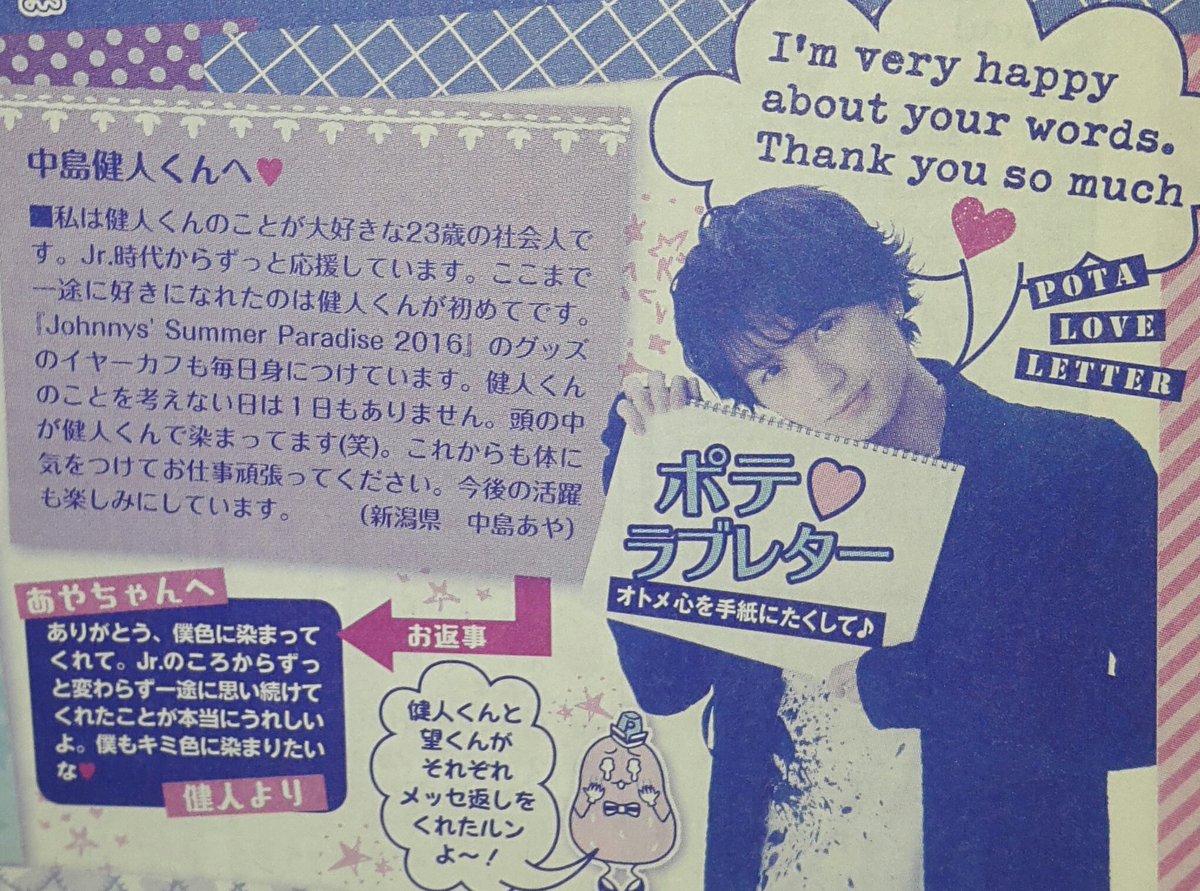 I'm very happy
about your words.
Thank you so much
中島健人くんへ♥
■私は健人くんのことが大好きな23歳の社会人で
す。Jr.時代からずっと応援しています。ここまで
一途に好きになれたのは健人くんが初めてです。
『Johnnys' Summer Paradise 2016』のグッズ
のイヤーカフも毎日身につけています。健人くん
のことを考えない日は1日もありません。頭の中
が健人くんで染まってます(笑)。これからも体に
気をつけてお仕事頑張ってください。今後の活躍
も楽しみにしています。 (新潟県 中島あや)
POTA
LOVE
LETTER
ポテ♥
ラブレター
オトメ心を手紙にたくして♪
お返事
あやちゃんへ
ありがとう、僕色に染まって
くれて。Jr.のころからずっ
と変わらず一途に思い続けて
くれたことが本当にうれしい
よ。僕もキミ色に染まりたい
な♥
健人より
健人くんと
望くんが
それぞれ
メッセ返しを
くれたルン
よ〜!
P